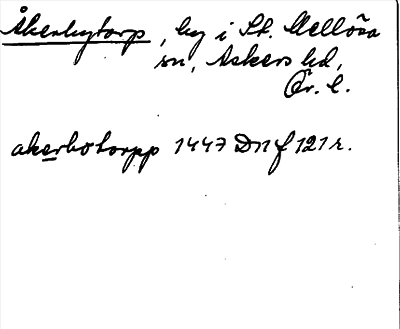 Åkerbytorp, by i St. Mellösa
sn, Askers hd,
Ör. l.
akerbotorpp 1447 Dn f 121 r.